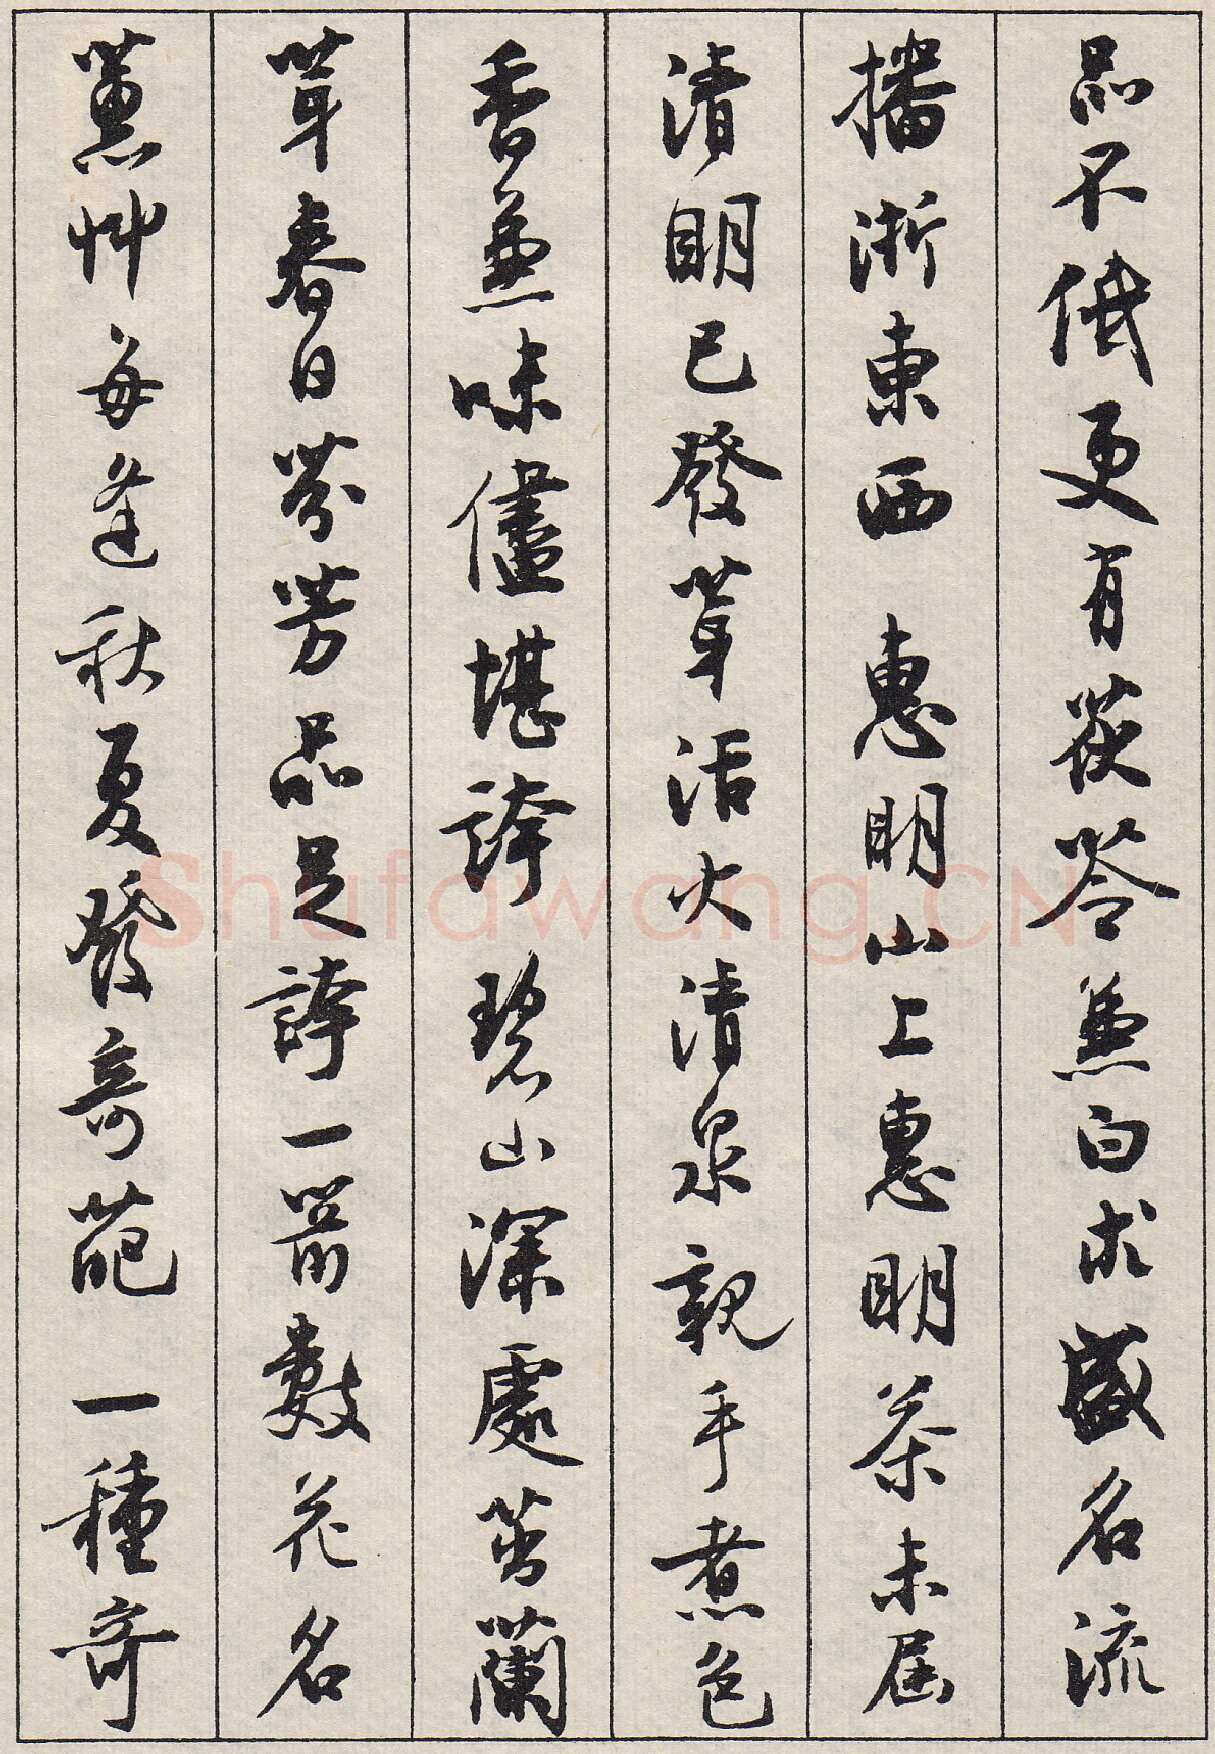 品不低更有茯苓兼白朮盛名流
播浙東西 惠明山上惠明茶未屆
清明已發芽活火清泉親手煮色
香兼味儘堪誇 碧山深處茁蘭
芽春日芬芳品足誇一箭數花名
蕙艸每逢秋夏發奇葩 一種奇
Shufawang.CN